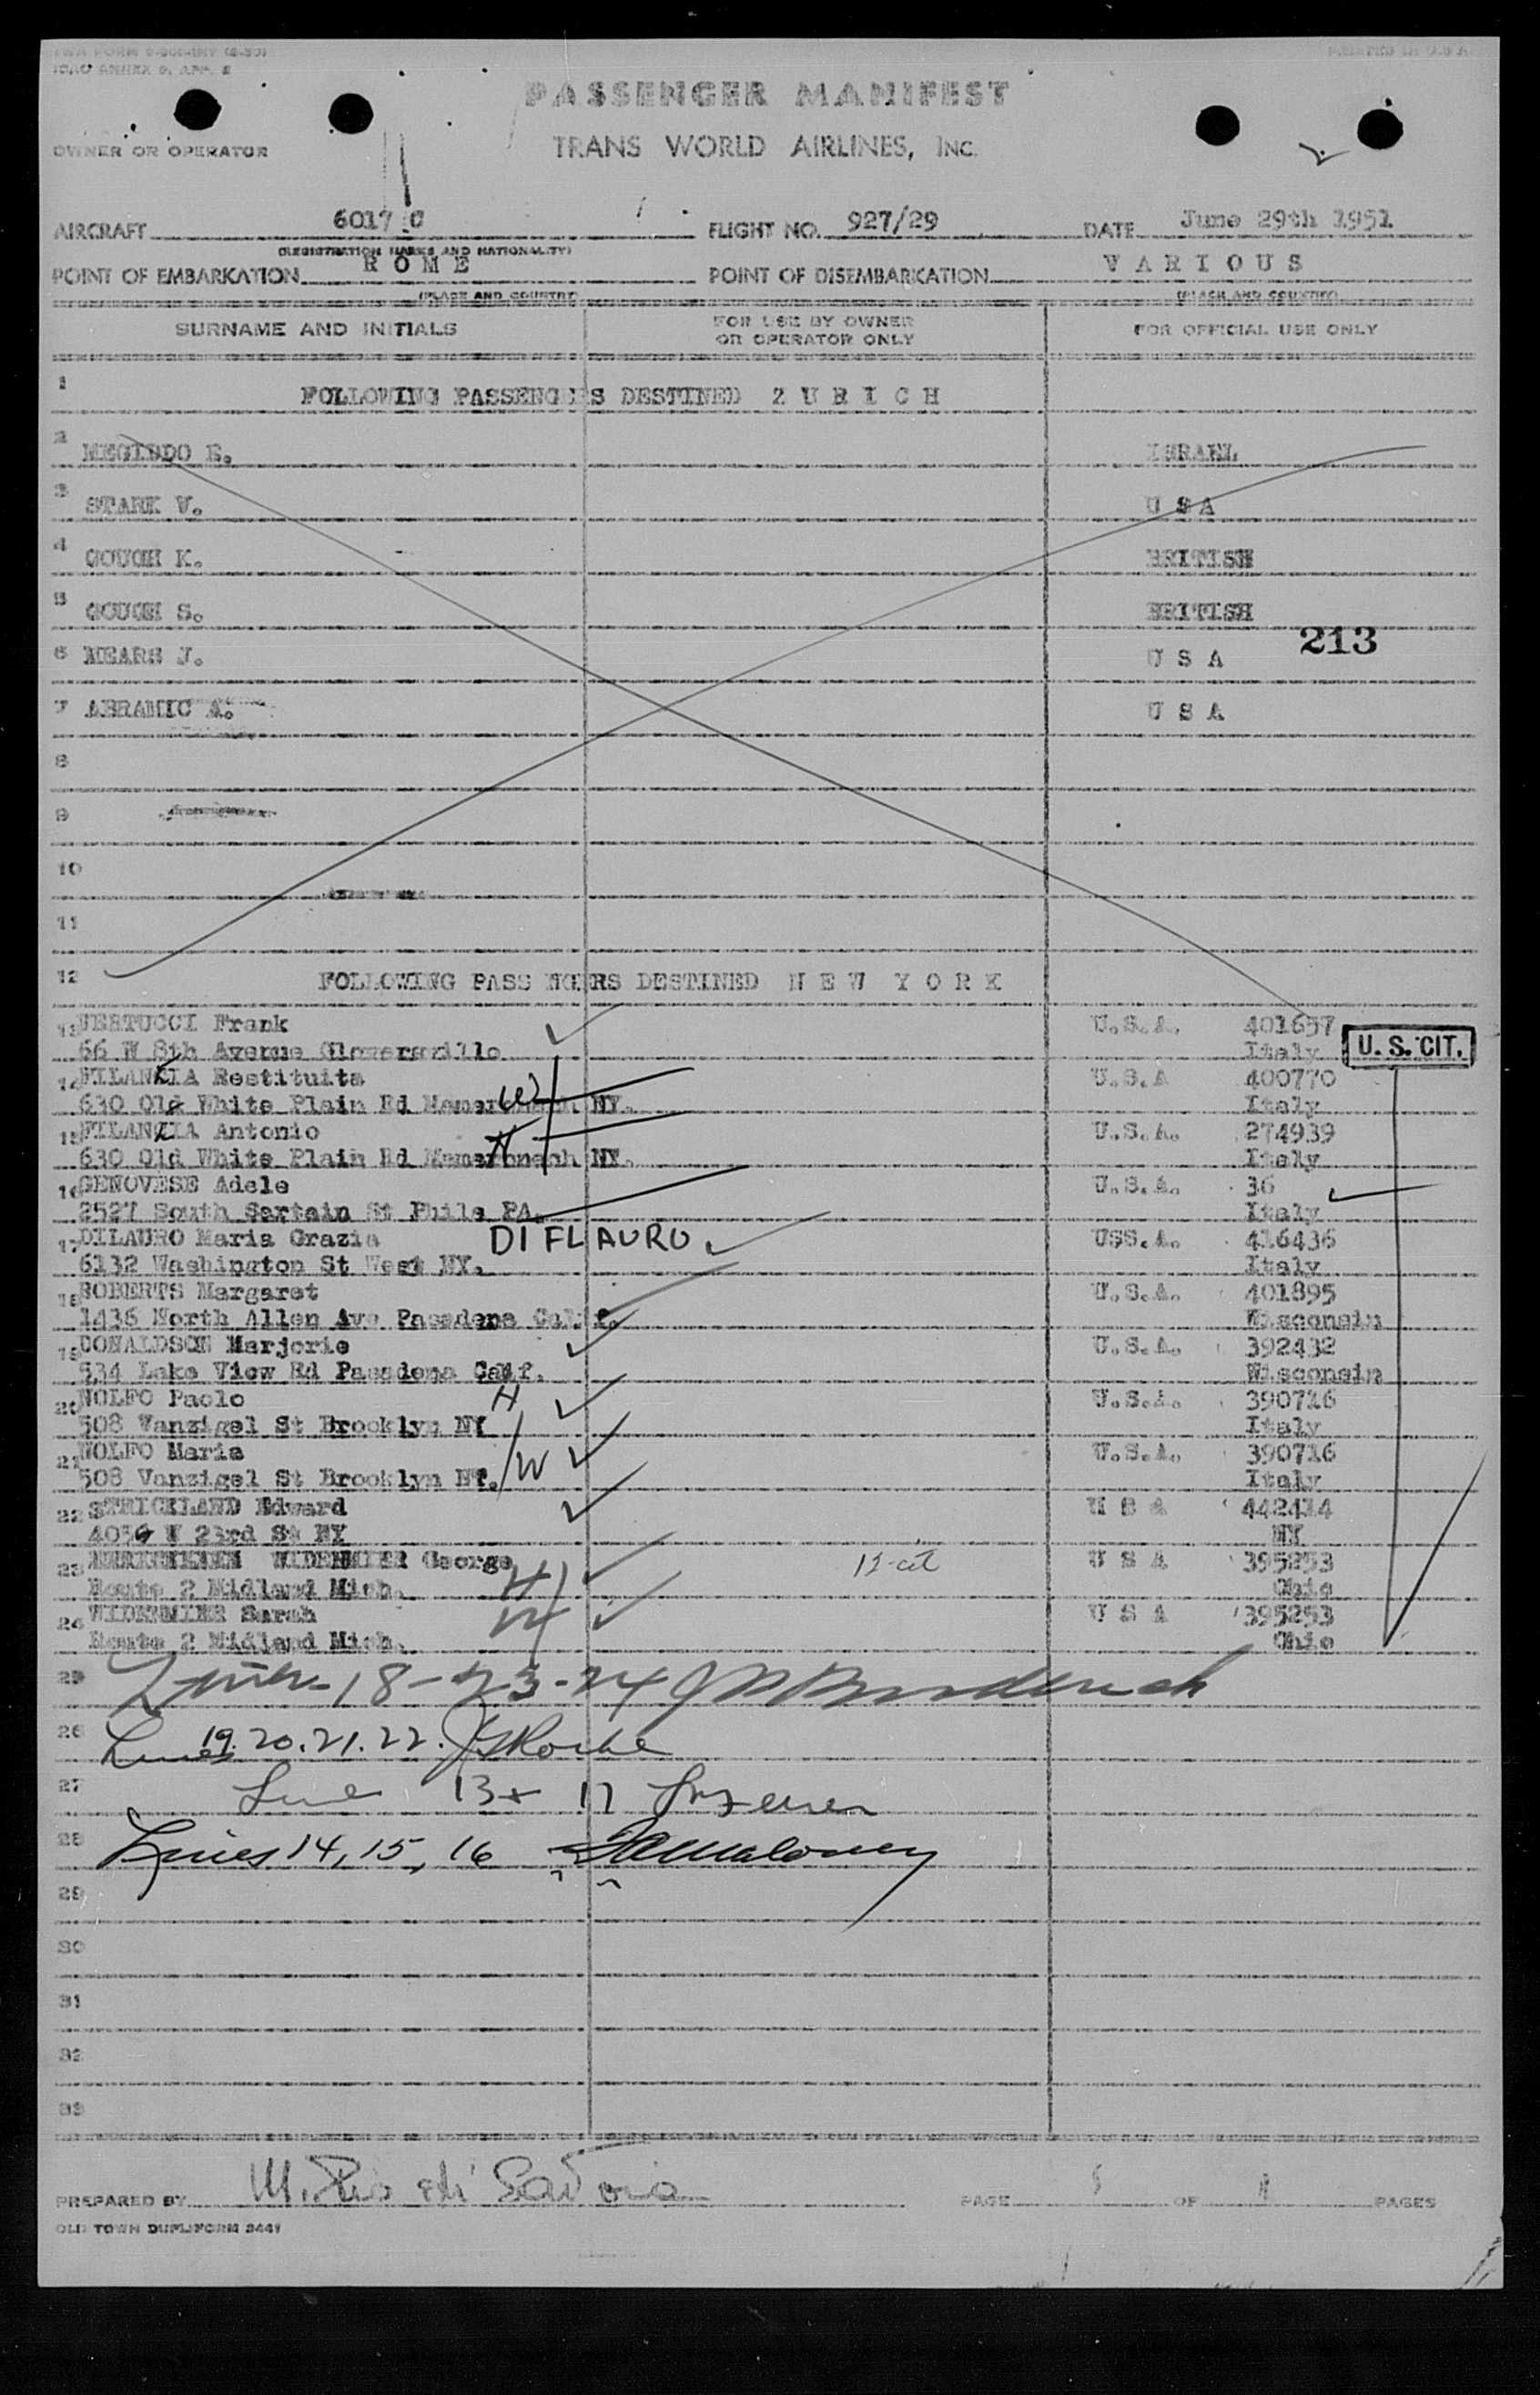 PRINTED IN U.S.A.
ICAO ANNEX 9, APP. 2
PASSENGER MANIFEST
OWNER OR OPERATOR TRANS WORLD AIRLINES, INC.
AIRCRAFT 6017 C FLIGHT NO. 927/29 DATE June 29th 1951
(REGISTRATION MARKS AND NATIONALITY)
POINT OF EMBARKATION R O M E POINT OF DISEMBARKATION V A R I O U S
(PLACE AND COUNTRY) (PLACE AND COUNTRY)
SURNAME AND INITIALS FOR USE BY OWNER OR OPERATOR ONLY FOR OFFICIAL USE ONLY
1 FOLLOWING PASSENGERS DESTINED Z U R I C H
2 MEGIDDO E. ISRAEL
3 STARK V. U S A
4 GOUGH K. BRITISH
5 GOUGH S. BRITISH
213
6 MEARS J. U S A
7 ABRAMIC A. U S A
8
9
10
11
12 FOLLOWING PASS NGERS DESTINED N E W Y O R K
13 VERTUCCI Frank U.S.A. 401657
66 W 8th Avenue Italy U. S. CIT.
14 Restituita U.S.A 400770
630 Old White Plain Rd NY. W Italy
15 Antonio U.S.A. 274939
630 Old White Plain Rd NY. H Italy
16 GENOVESE Adele U.S.A. 36
2527 South Sartain St Phila PA. Italy
17 DILAURO Maria Grazia DI FLAURO USS.A. 416436
6132 Washington St West NY. Italy
18 ROBERTS Margaret U.S.A. 401895
1436 North Allen Ave Pasadena Calif. Wisconsin
19 DONALDSON Marjorie U.S.A. 392432
534 Lake View Rd Pasadena Calif. Wisconsin
20 NOLFO Paolo H U.S.A. 390716
508 Vanzigel St Brooklyn NY Italy
21 NOLFO Maria W U.S.A. 390716
508 Vanzigel St Brooklyn NY. Italy
22 STRICKLAND Edward U S A 442414
23rd St NY NY
23 WIDENMIER George H U S A 395253
Route 2 Midland Mich. Ohio
24 WIDENMIER Sarah W U S A 395253
Route 2 Midland Mich. Ohio
25 18-23-24
26 Lines 19. 20. 21. 22.
27 Line 13 + 17
28 Lines 14, 15, 16
29
30
31
32
33
PREPARED BY PAGE OF PAGES
OLD TOWN DUPLIFORM 3441